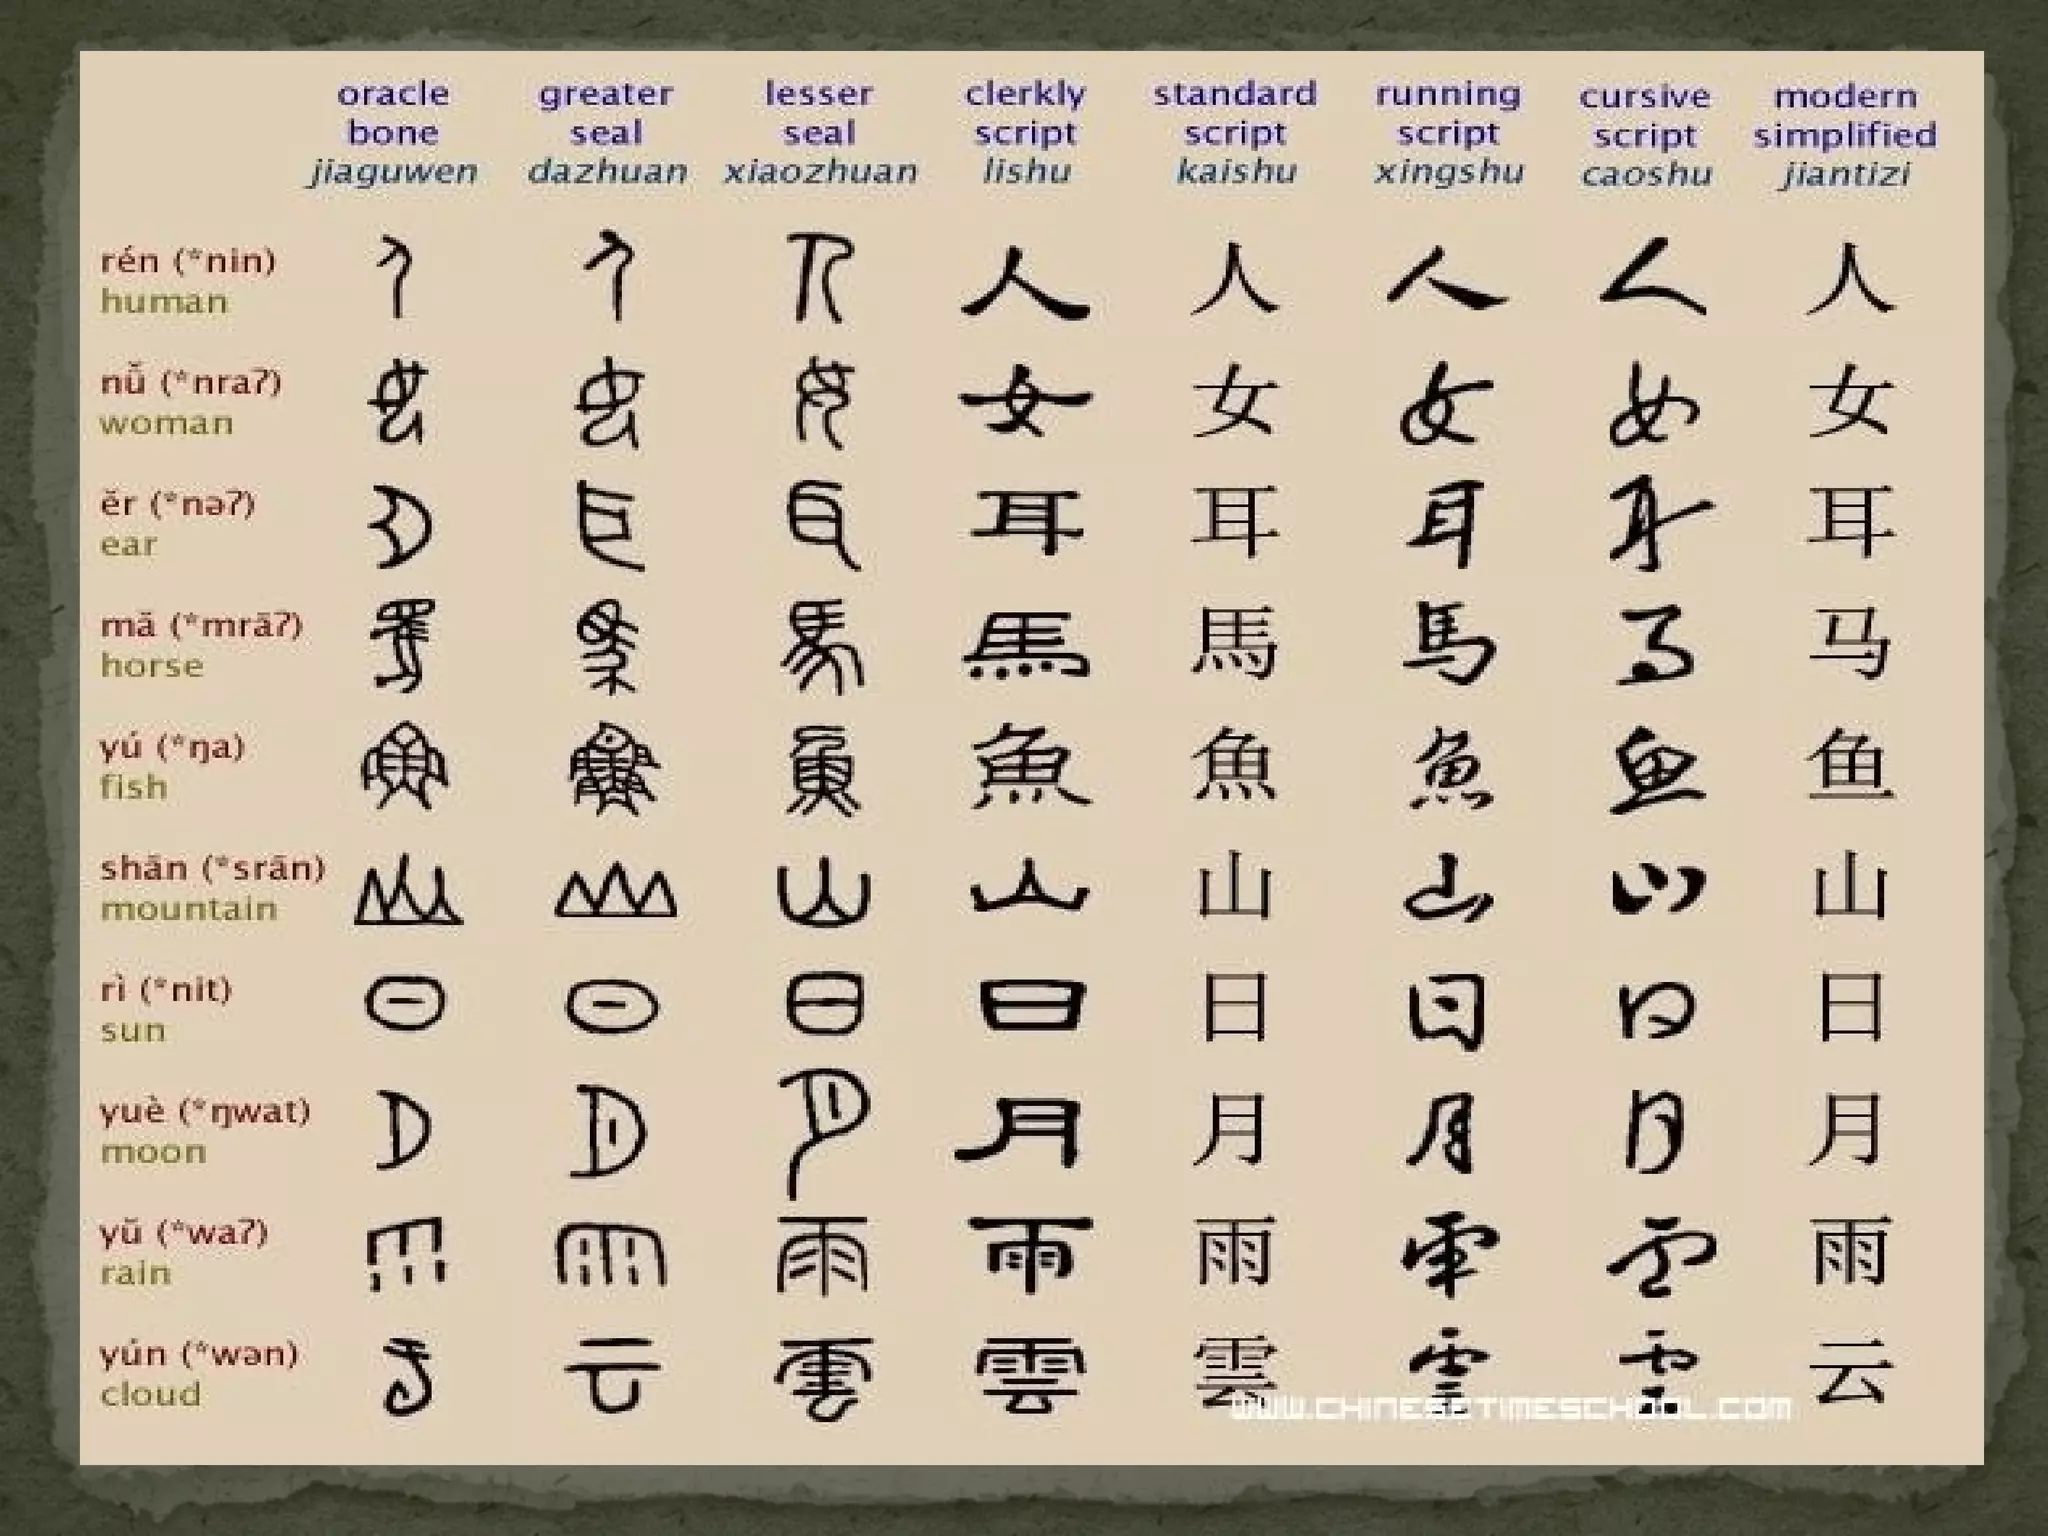 oracle bone jiaguwen
greater seal dazhuan
lesser seal xiaozhuan
clerkly script lishu
standard script kaishu
running script xingshu
cursive script caoshu
modern simplified jiantizi
rén (*nin)
human
人 人 人 人 人
nǚ (*nraʔ)
woman
女 女 女 女 女
ěr (*nəʔ)
ear
耳 耳 耳 耳 耳
mă (*mrāʔ)
horse
馬 馬 馬 马
yú (*ŋa)
fish
魚 魚 魚 鱼
shān (*srān)
mountain
山 山 山 山 山
rì (*nit)
sun
日 日 日 日 日
yuè (*ŋwat)
moon
月 月 月 月 月
yŭ (*waʔ)
rain
雨 雨 雨 雨 雨
yún (*wən)
cloud
雲 雲 雲 云
WWW.CHINESETIMESCHOOL.COM